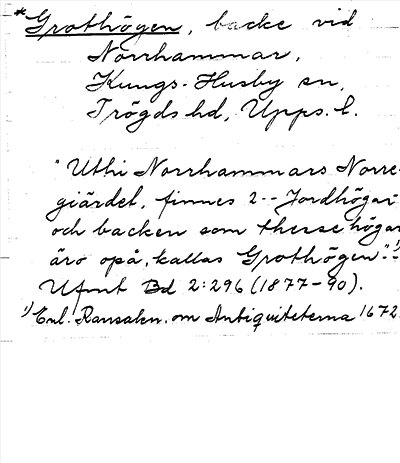 *Grothögen, backe vid
Norrhammar,
Kungs-Husby sn,
Trögds hd, Upps. l.
"Uthi Norrhammars Norre-
giärdet, finnes 2-- Jordhögar
och backen som therse högar
äro opå, kallas Grothögen"--1)
Ufmt Bd 2:296 (1877-90).
1) Enl. Ransakn. om Antiquiteterna 1672.